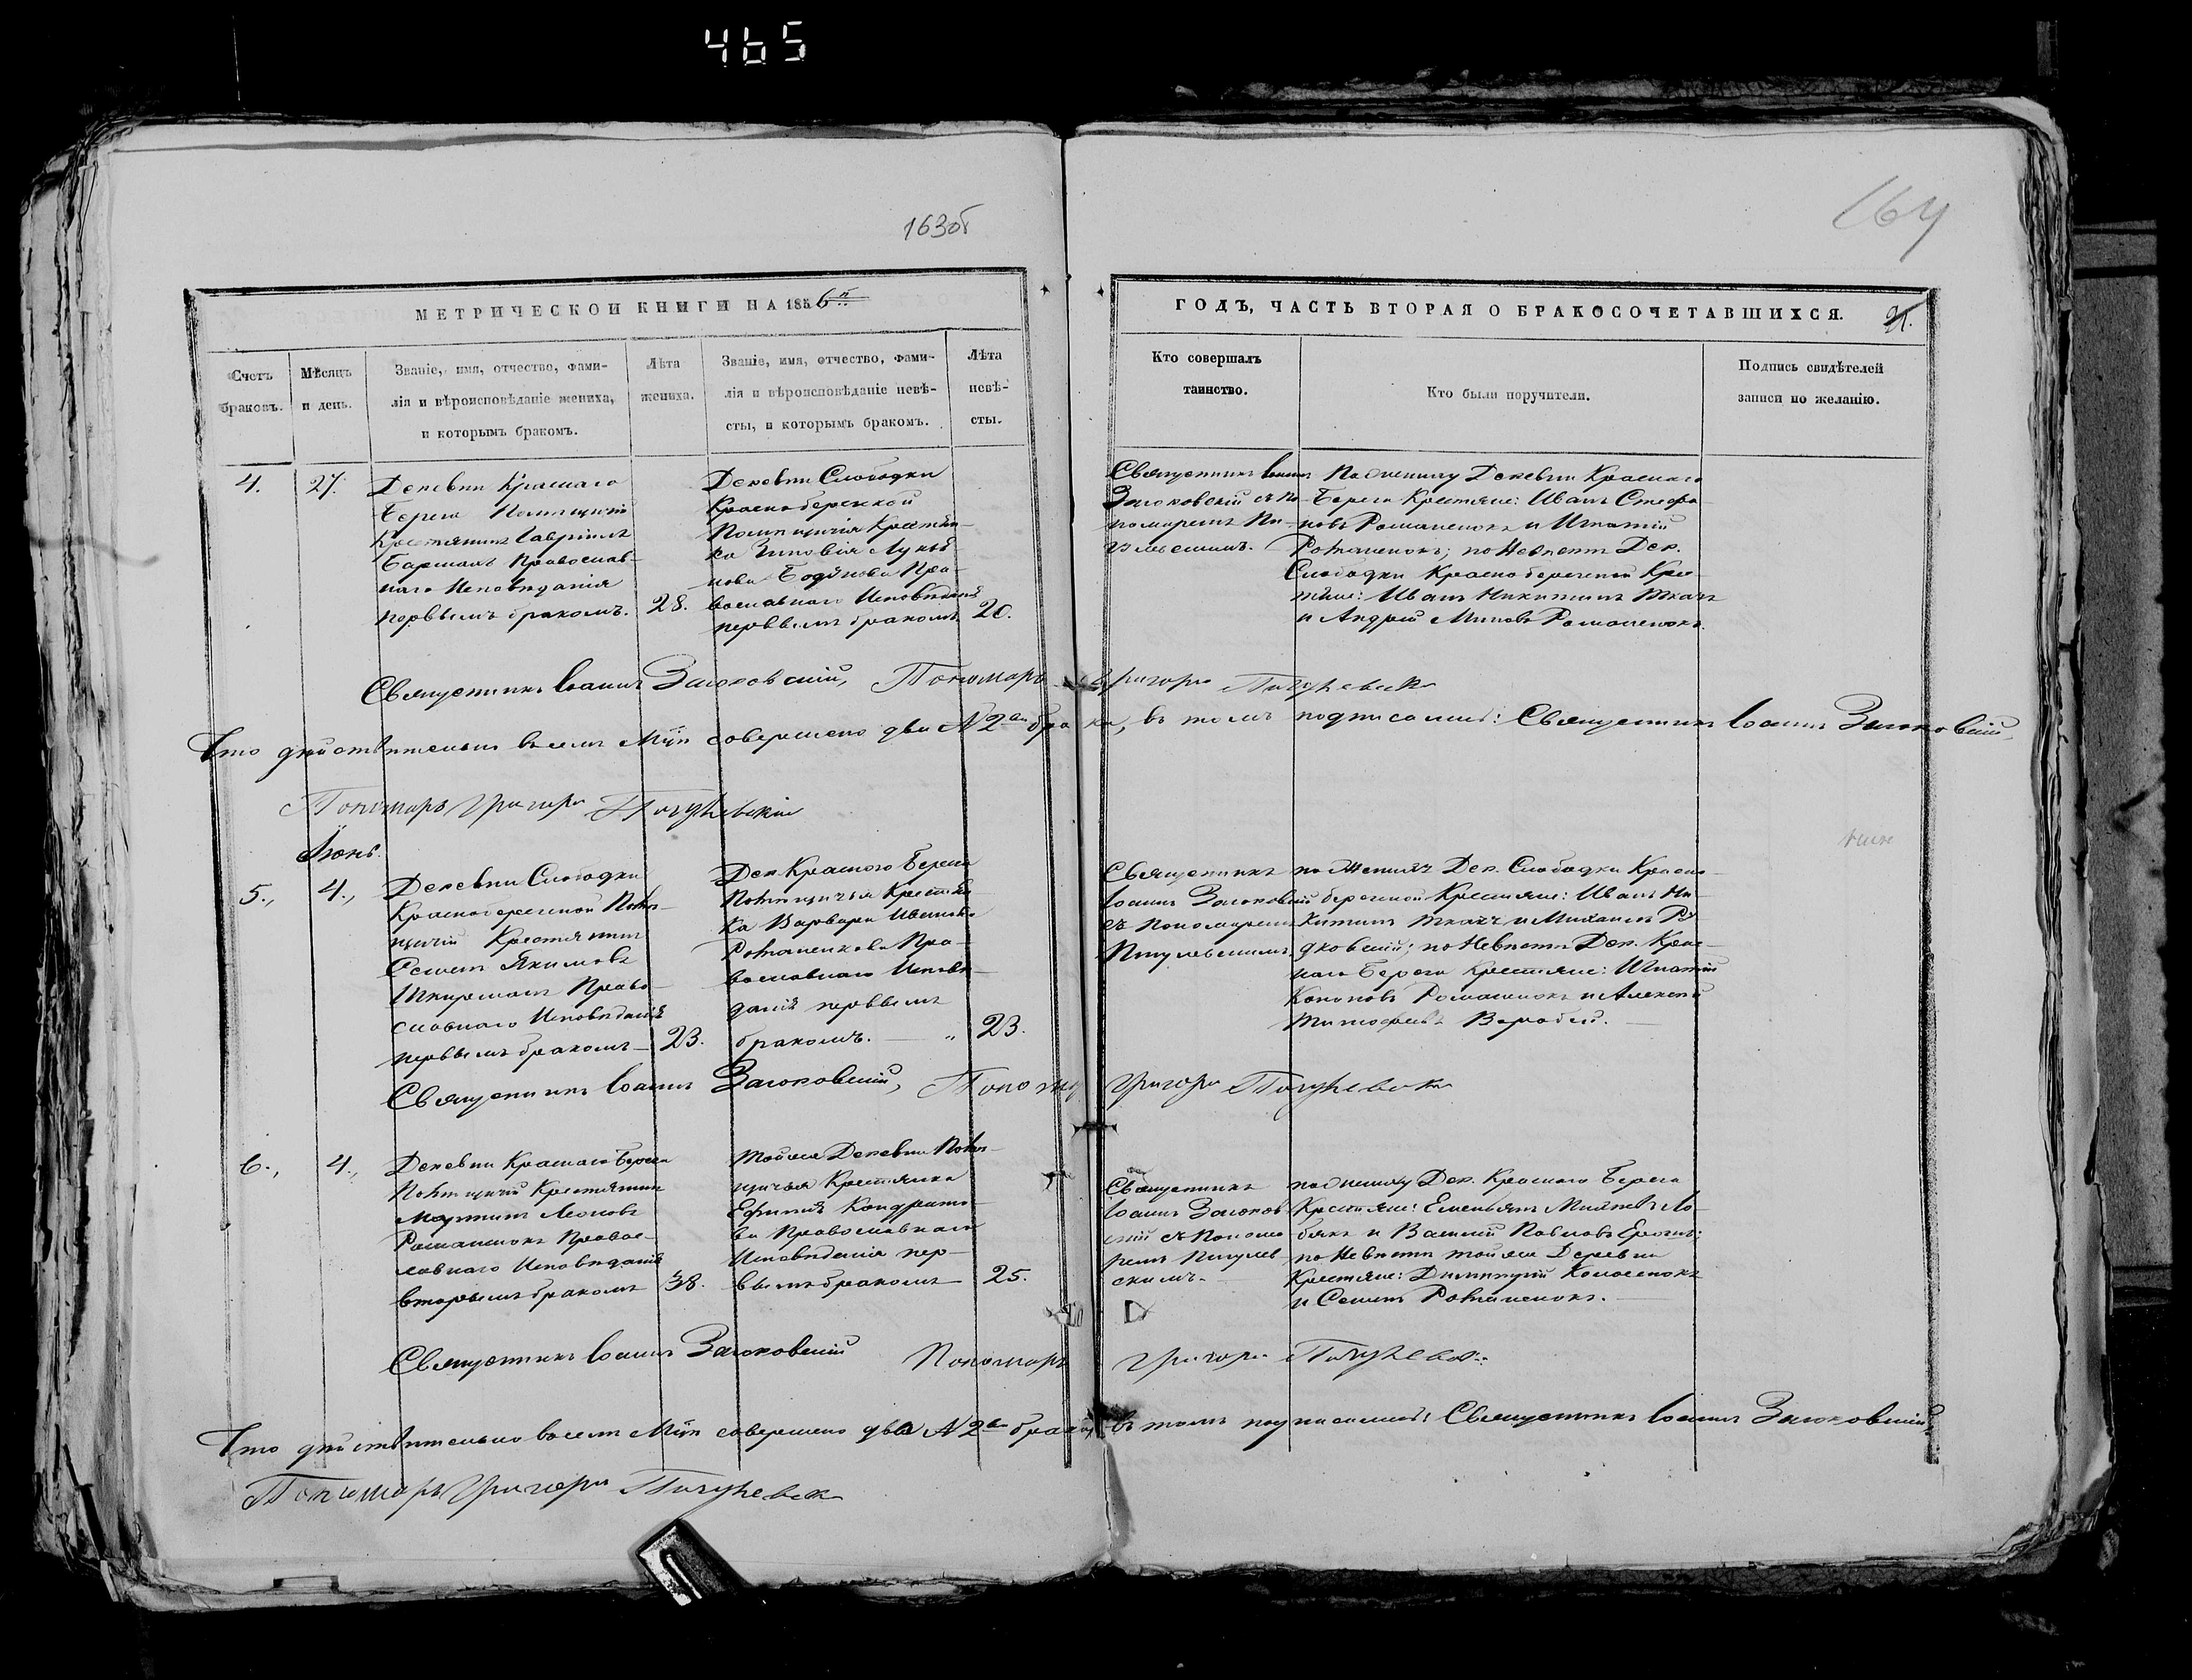 465
163об
164
МЕТРИЧЕСКОЙ КНИГИ НА 1856й
Счетъ
браковъ.
Мѣсяцъ
и день.
Званіе, имя, отчество, фами-
лія и вѣроисповѣданіе жениха,
и которымъ бракомъ.
Лѣта
жениха.
Званіе, имя, отчество, фами-
лія и вѣроисповѣданіе невѣ-
сты, и которымъ бракомъ.
Лѣта
невѣ-
сты.
ГОДЪ, ЧАСТЬ ВТОРАЯ О БРАКОСОЧЕТАВШИХСЯ. 21.
Кто совершалъ
таинство.
Кто были поручители.
Подпись свидѣтелей
записи по желанію.
4.
27.
Деревни Краснаго
Берега
Крестьянинъ Гавріилъ
Православ-
наго Исповѣданія
первымъ бракомъ.
28.
Деревни Слободки
Краснобережской
Помѣщичія Крестьян-
ка Зиновія
Пра-
вославнаго Исповѣданія
первымъ бракомъ
20.
Священникъ Іоаннъ
Заіоковскій съ По-
номаремъ
По Жениху Деревни Краснаго
Берега Крестьяне: Иванъ Стефа-
новъ Романенокъ и Игнатій
Романенокъ; по Невѣстѣ Дер.
Слободки Краснобережной Крес-
тьяне: Иванъ Никитинъ Ткачъ
и Андрей Романенокъ.
Священникъ Іоаннъ Заіоковскій, Пономарь Григорій
Что дѣйствительно въ семъ М-цѣ совершено два N 2 брака, въ томъ подписались: Священникъ Іоаннъ Заіоковскій,
Пономарь Григорій
Іюнь.
5.,
4.,
Деревни Слободки
Краснобережной Помѣ-
щичій Крестьянинъ
Семенъ Якимовъ
Право-
славнаго Исповѣданія
первымъ бракомъ
23.
Дер. Краснаго Берега
Помѣщичья Крестьян-
ка Варвара Иванова
Романенкова Пра-
вославнаго Исповѣ-
данія первымъ
бракомъ. „
23.
Священникъ
Іоаннъ Заіоковскій
съ Пономаремъ
по Женихѣ Дер. Слободки Красно-
бережной Крестьяне: Иванъ Ни-
китинъ Ткачъ и Михаилъ Ру-
дковскій; по Невѣстѣ Дер. Крас-
наго Берега Крестьяне: Игнатій
Кононовъ Романенокъ и Алексѣй
Тимофеевъ Воробей.
Священникъ Іоаннъ Заіоковскій, Пономарь Григорій
6.,
4.,
Деревни Краснаго Берега
Помѣщичій Крестьянинъ
Мартинъ Леоновъ
Романенокъ Правос-
лавнаго Исповѣданія
вторымъ бракомъ
38.
Тойже Деревни Помѣ-
щичья Крестьянка
Ефимія Кондрато-
ва Православнаго
Исповѣданія пер-
вымъ бракомъ
25.
Священникъ
Іоаннъ Заіоков-
скій съ Понома-
ремъ
скимъ.
по Жениху Дер. Краснаго Берега
Крестьяне: Емельянъ
и Василій Павловъ
по Невѣстѣ тойже Деревни
Крестьяне: Димитрій
и Семенъ Романенокъ.
Священникъ Іоаннъ Заіоковскій Пономарь Григорій
Что дѣйствительно въ семъ М-цѣ совершено два N 2 брака, въ томъ подписались: Священникъ Іоаннъ Заіоковскій,
Пономарь Григорій